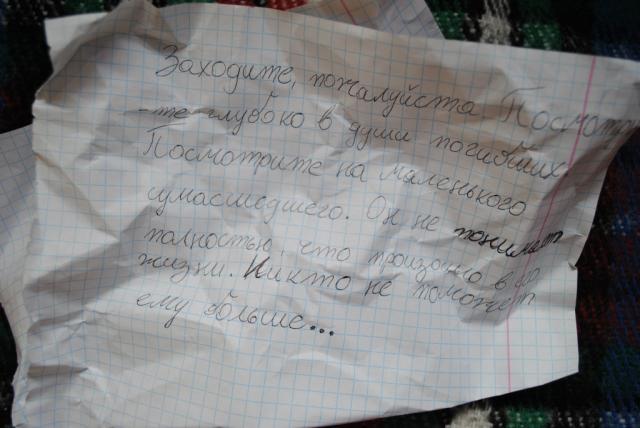 Заходите, пожалуйста. Посмотри
-те глубоко в души погибших.
Посмотрите на маленького
сумасшедшего. Он не понимает
полностью, что произошло в его
жизни. Никто не поможет
ему больше...